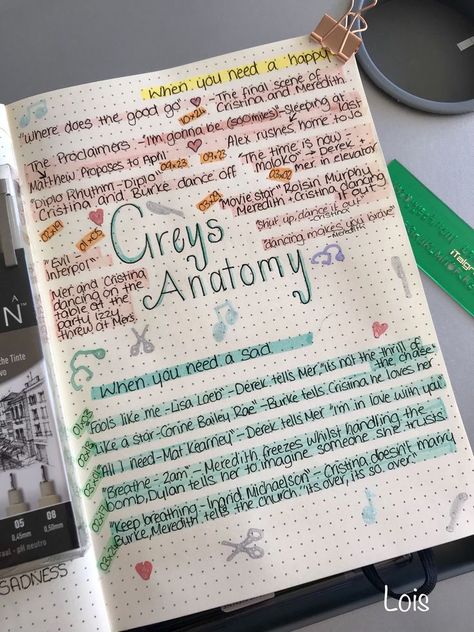 When you need a happy
"Where does the good go" The final scene of
10x24 Cristina and Meredith
The Proclaimers - "I'm gonna be (500 miles)" - sleeping at last
Matthew Proposes to April Alex rushes home to Jo
09x23
"Diplo Rhythm - Diplo" "The time is now -
Cristina and Burke dance off moloko" - Derek +
03x02 mer in elevator
03x21 "Movie star" Roisin Murphy
Meredith + Cristina dancing
it out
02x19 01x05
"Shut up, dance it out"
- Cristina
"dancing makes you brave"
- Meredith
"Evil -
Interpol"
Mer and Cristina
dancing on the
table at the
party Izzy
threw at Mers.
Greys
Anatomy
When you need a sad
"Fools like me - Lisa Loeb" - Derek tells Mer "its not the thrill of
the chase"
"Like a star - Corine Bailey Rae" - Burke tells Cristina he loves her
"All I need - Mat Kearney" - Derek tells Mer "I'm in love with you"
"Breathe - 2am" - Meredith freezes whilst handling the
bomb, Dylan tells her to imagine someone she trusts.
02x17
"Keep breathing - Ingrid Michaelson" - Cristina doesn't marry
Burke, Meredith tells the church "its over, its so over."
SADNESS
N
he Tinte
05 08
0,45mm 0,50mm
pH neutro
Lois